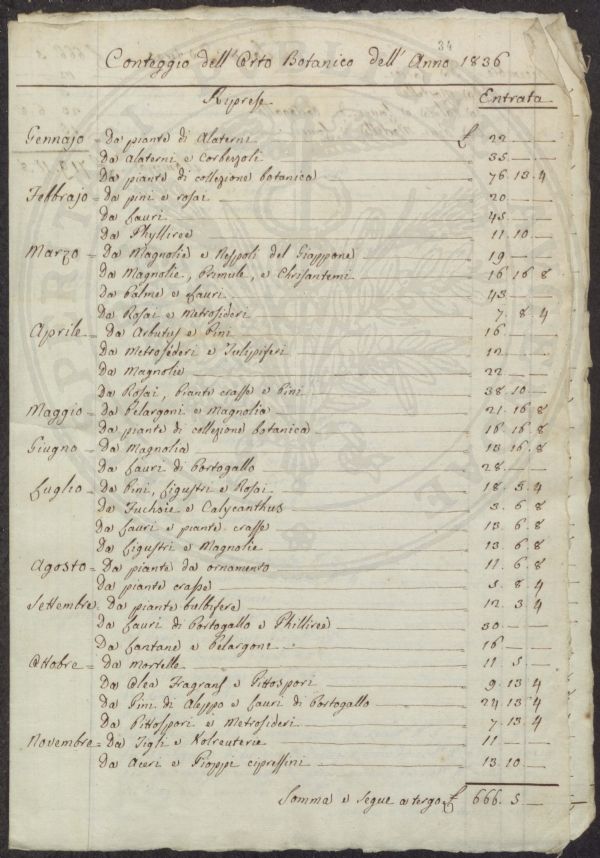 34
Conteggio dell'Orto Botanico dell'Anno 1836
Riprese Entrata
Gennajo = Da piante di Alaterni £ 22 — —
Da Alaterni e Corbezoli 35 — —
Da piante di collezione botanica 76. 13. 4
Febbrajo = Da pini e rosai 20 — —
Da Lauri 45 — —
Da Phylliree 11. 10 —
Marzo = Da Magnolie e Nespoli del Giappone 19 — —
Da Magnolie, Primule, e Chrisantemi 16 16 8
Da Palme e Lauri 43 — —
Da Rosai e Metrosideri 7. 8 4
Aprile = Da Arbutus e Pini 16 — —
Da Metrosideri e Tulippiferi 12 — —
Da Magnolie 22 — —
Da Rosai, piante crasse e Pini 38. 10 —
Maggio = Da Pelargoni e Magnolia 21. 16. 8
Da piante di collezione botanica 16. 16. 8
Giugno = Da Magnolia 13 16. 8
Da Lauri di Portogallo 28 — —
Luglio = Da Pini, Ligustri e Rosai 18. 5. 4
Da Fuchsie e Calycanthus 3. 6. 8
Da Lauri e piante crasse 13. 6. 8
Da Ligustri e Magnolie 13. 6. 8
Agosto = Da piante da ornamento 11. 6. 8
Da piante crasse 5. 8 4
Settembre = Da piante bulbifere 12. 3 4
Da Lauri di Portogallo e Philliree 30 — —
Da Lantane e Pelargoni 16 — —
Ottobre = Da Mortelle 11 5 —
Da Olea Fragrans e Pittospori 9. 13 4
Da Pini di Aleppo e Lauri di Portogallo 24 13 4
Da Pittospori e Metrosideri 7. 13 4
Novembre = Da Tigli e Kolreuterie 11 — —
Da Aceri e Pioppi cipressini 13. 10 —
Somma e segue a tergo £ 666. 5 —